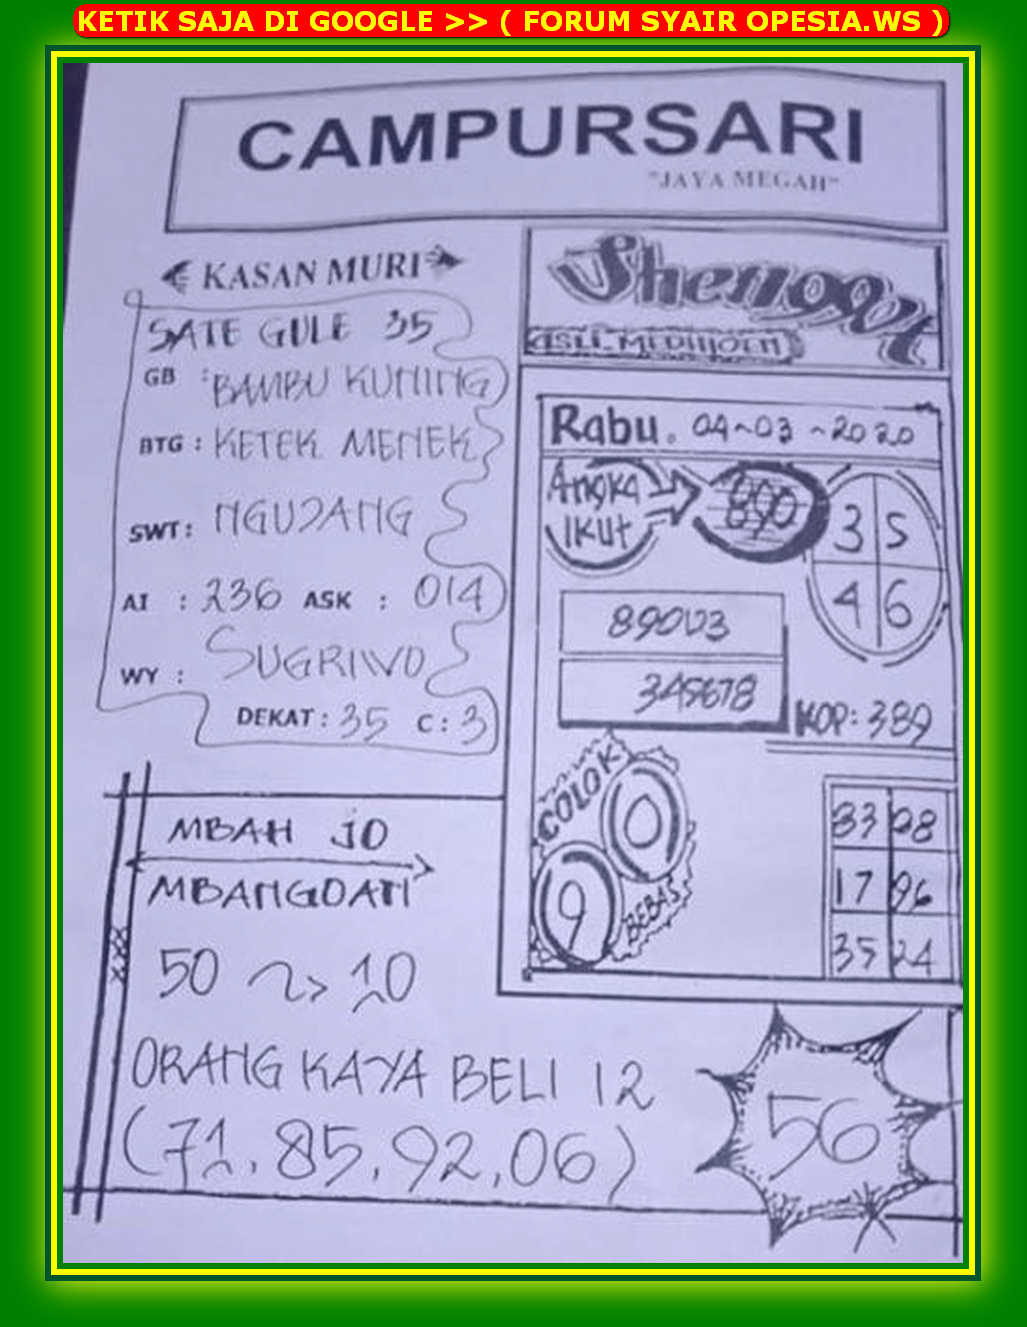 KETIK SAJA DI GOOGLE >> ( FORUM SYAIR OPESIA.WS )
CAMPURSARI
"JAYA MEGAH"
KASAN MURI
SATE GULE 35
GB : BAMBU KUNING
BTG : KETEK MENEK
SWT : NGUDANG
AI : 236 ASK : 014
WY : SUGRIWO
DEKAT : 35 C : 3
Shengot
ASLI MEDIHOEN
Rabu. 04-03-2020
Angka
Ikut
890
3 5
4 6
89013
345678
KOP: 389
COLOK
0
9
BEBAS
83 28
17 96
35 24
MBAH JO
MBANGDATI
50 10
ORANG KAYA BELI 12
(71, 85, 92, 06)
56